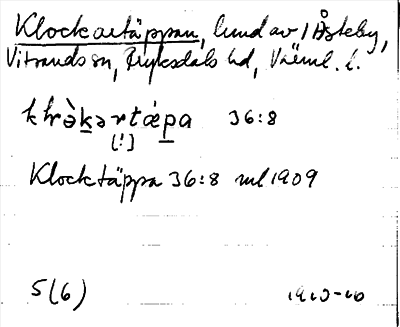 Klockaretäppan, lund av 1 Åsteby,
Vitsands sn, Fryksdals hd, Värml. l.
36:8
[!]
Klocktäppa 36:8 ml 1909
5(6)